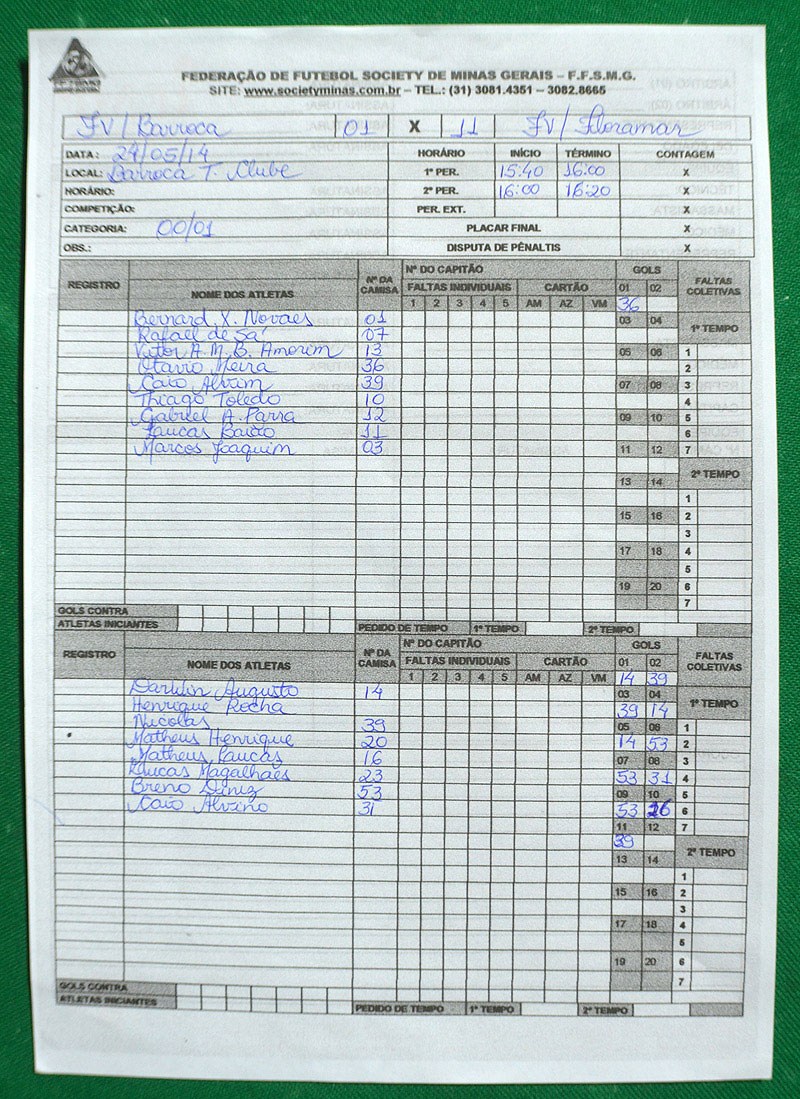 FEDERAÇÃO DE FUTEBOL SOCIETY DE MINAS GERAIS – F.F.S.M.G.
SITE: www.societyminas.com.br – TEL.: (31) 3081.4351 – 3082.8665
FV/Barroca 01 X 11 FV/Floramar
DATA: 24/05/14 HORÁRIO INÍCIO TÉRMINO CONTAGEM
LOCAL: Barroca T. Clube 1º PER. 15:40 16:00 X
HORÁRIO: 2º PER. 16:00 16:20 X
COMPETIÇÃO: PER. EXT. X
CATEGORIA: 00/01 PLACAR FINAL X
OBS.: DISPUTA DE PÊNALTIS X
REGISTRO NOME DOS ATLETAS Nº DA CAMISA Nº DO CAPITÃO GOLS FALTAS COLETIVAS
FALTAS INDIVIDUAIS CARTÃO 01 02
1 2 3 4 5 AM AZ VM 36
Bernard X. Novaes 01 03 04 1º TEMPO
Rafael de Sá 07
Vitor A. M. B. Amorim 13 05 06 1
Otavio Meira 36 2
Caio Alvim 39 07 08 3
Thiago Toledo 10 4
Gabriel A. Parra 12 09 10 5
11 6
Marcos Joaquim 03 11 12 7
13 14 2º TEMPO
1
15 16 2
3
17 18 4
5
19 20 6
7
GOLS CONTRA
ATLETAS INICIANTES PEDIDO DE TEMPO 1º TEMPO 2º TEMPO
REGISTRO NOME DOS ATLETAS Nº DA CAMISA Nº DO CAPITÃO GOLS FALTAS COLETIVAS
FALTAS INDIVIDUAIS CARTÃO 01 02
1 2 3 4 5 AM AZ VM 14 39
Darwin Augusto 14 03 04 1º TEMPO
Henrique Rocha 39 14
Nicolas 39 05 06 1
Matheus Henrique 20 14 53 2
Matheus Lucas 16 07 08 3
Lucas Magalhães 23 53 31 4
Breno Diniz 53 09 10 5
Caio Alvino 31 53 6
11 12 7
39 2º TEMPO
13 14
1
15 16 2
3
17 18 4
5
19 20 6
7
GOLS CONTRA
ATLETAS INICIANTES PEDIDO DE TEMPO 1º TEMPO 2º TEMPO